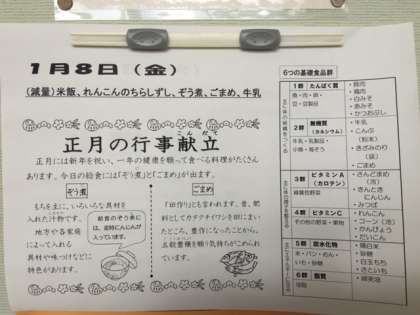 1月8日（金）
（減量）米飯、れんこんのちらしずし、ぞう煮、ごまめ、牛乳
正月の行事献立
こんだて
正月には新年を祝い、一年の健康を願って食べる料理がたくさん
あります。今日の給食には「ぞう煮」と「ごまめ」が出ます。
ぞう煮
もちを主に、いろいろな具材を
入れた汁物です。
地方や各家庭
によって入れる
具材や味つけなどに
特色があります。
給食のぞう煮に
は、金時にんじんが
入っています。
ごまめ
「田作り」とも言われます。昔、肥
料としてカタクチイワシを田にまい
たところ、豊作になったことから、
五穀豊穣を願う気持ちがこめられ
ています。
6つの基礎食品群
1群 たんぱく質
魚・肉・卵
豆・豆製品
・鶏肉
・白みそ
・赤みそ
・かつおぶし
2群 無機質
（カルシウム）
牛乳・乳製品・
小魚・海そう
・牛乳
・こんぶ
（粉末）
・きざみのり
（袋）
・ごまめ
3群 ビタミンA
（カロテン）
緑黄色野菜
・さんど豆
（冷）
・きんとき
にんじん
・みつば
4群 ビタミンC
その他の野菜・果物
・れんこん
・コーン（冷）
・かんぴょう
・だいこん
5群 炭水化物
米・パン・めん・
いも・砂糖
・精白米
・砂糖
・白玉もち
・さといも
6群 脂質
油脂
・綿実油